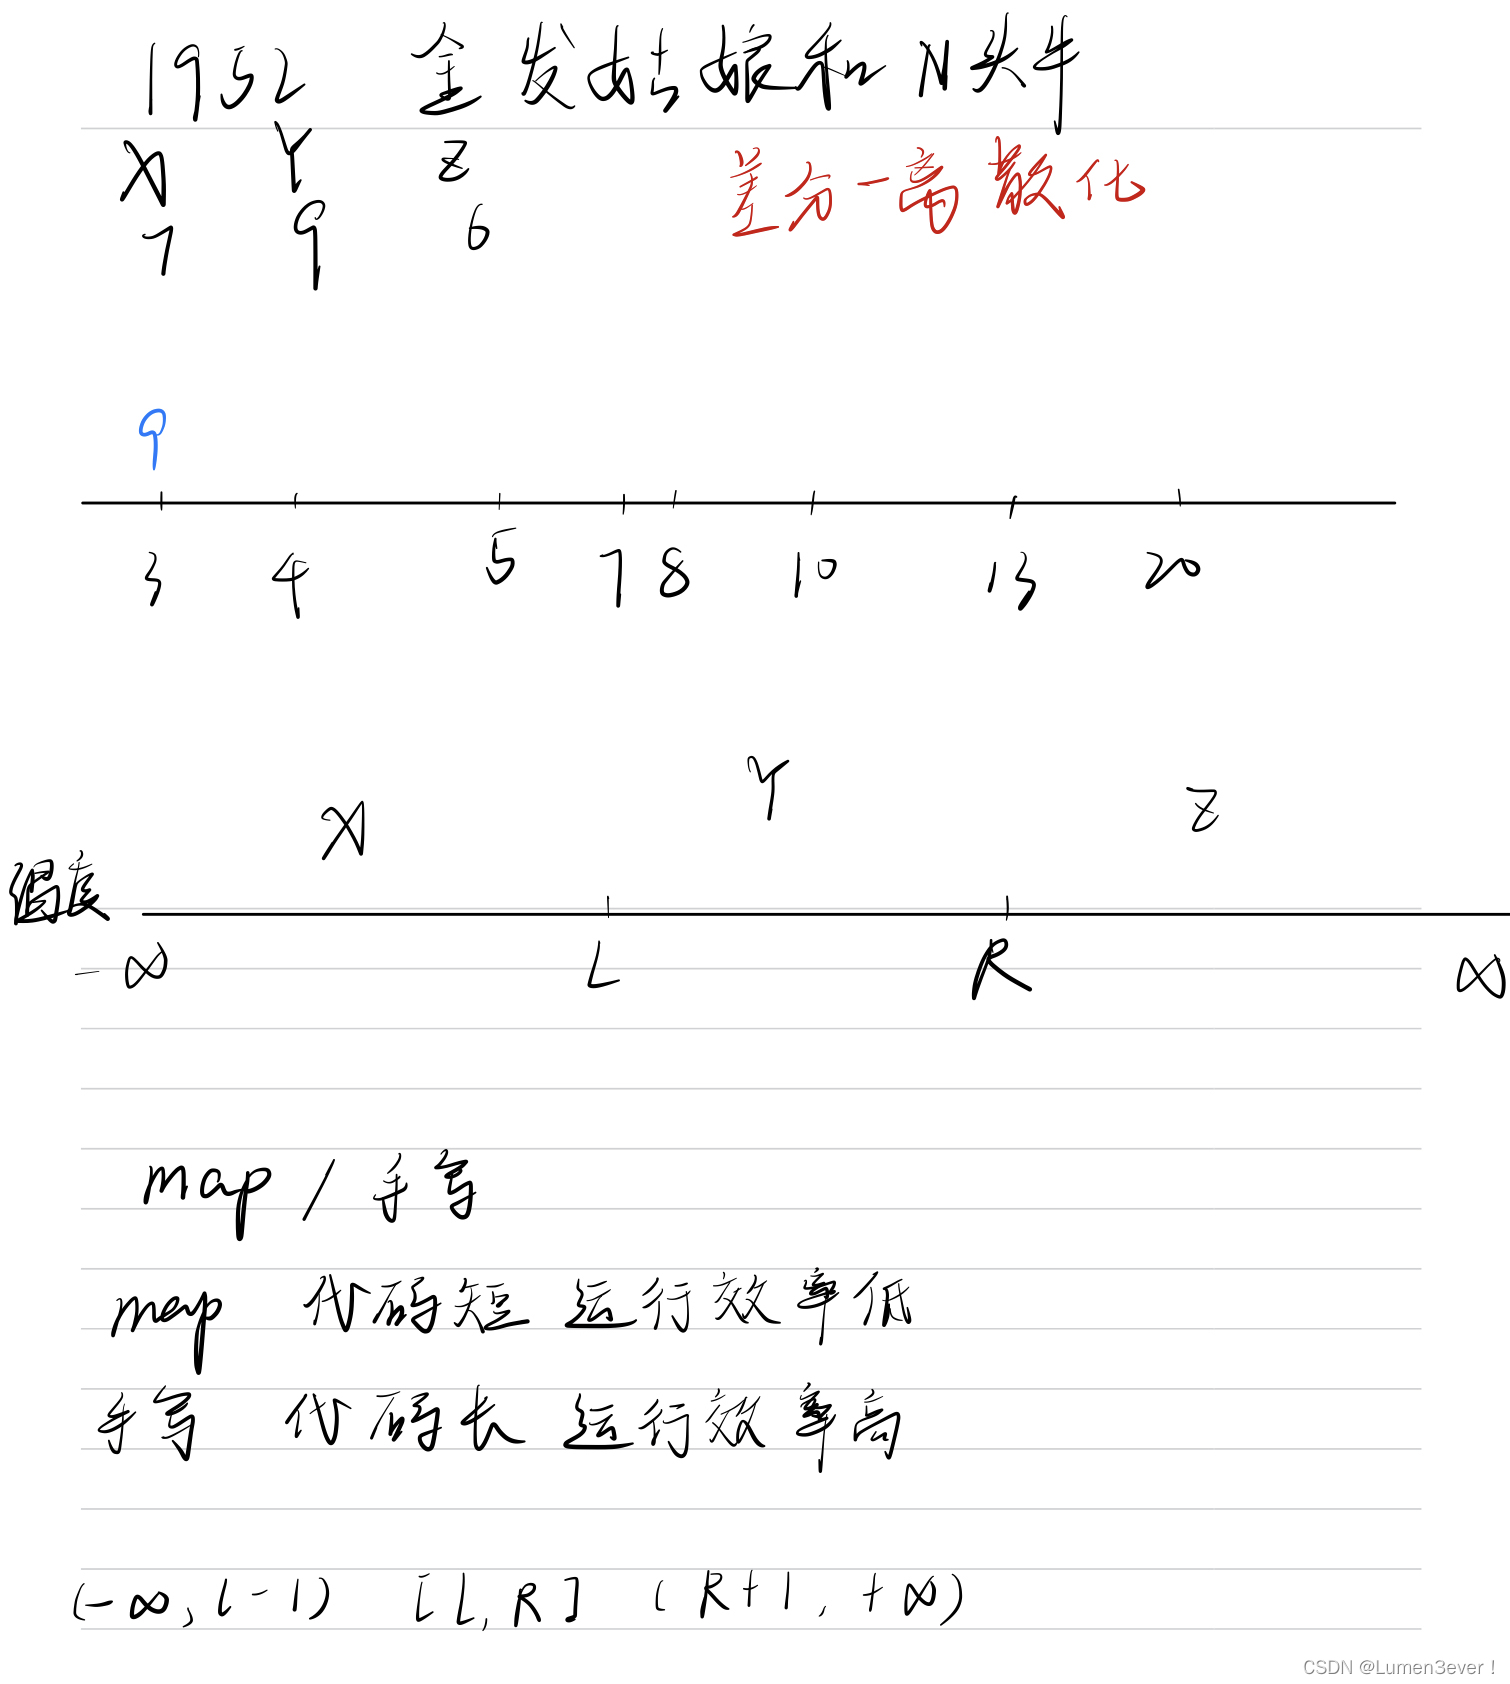 1952 金发姑娘和N头牛
X Y Z
差分-离散化
7 9 6
9
3 4 5 7 8 10 13 20
X Y Z
温度
-∞ L R ∞
map / 手写
map 代码短 运行效率低
手写 代码长 运行效率高
(-∞, l-1) [l, R] (R+1, +∞)
CSDN @Lumen3ever！